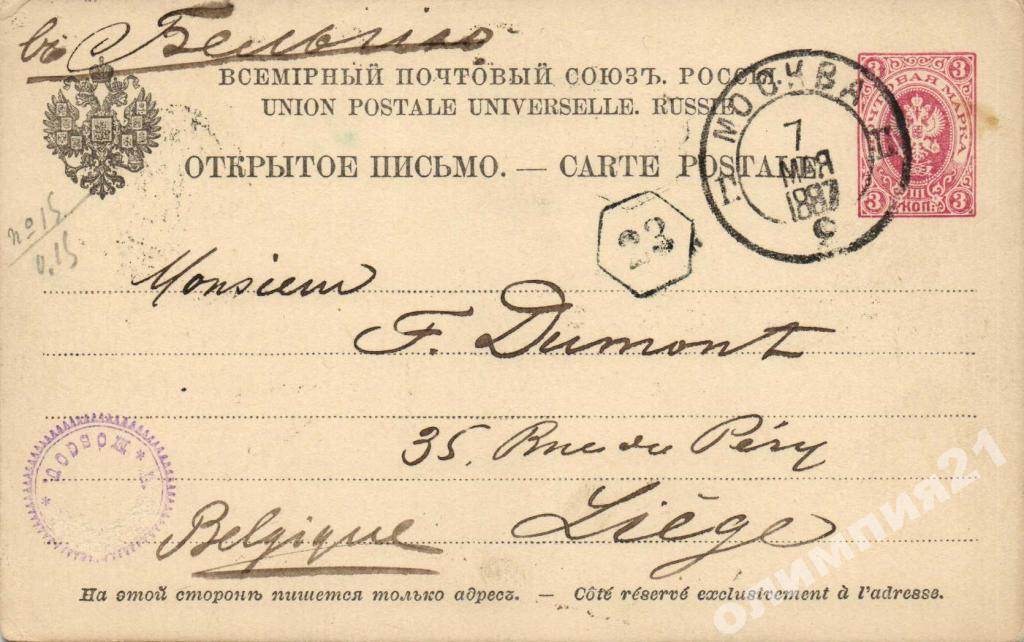 въ Бельгию
ВСЕМІРНЫЙ ПОЧТОВЫЙ СОЮЗЪ. РОССІЯ.
UNION POSTALE UNIVERSELLE. RUSSIE.
ОТКРЫТОЕ ПИСЬМО. — CARTE POSTALE.
ПОЧТОВАЯ МАРКА
3 3
3 КОП. 3
МОСКВА
7
МАЯ
1887
9
23
nº 15
0.15
Monsieur
F. Dumont
35, Rue du Péry
Liége
Belgique
* Moscou. *
На этой сторонѣ пишется только адресъ. — Côté réservé exclusivement à l'adresse.
олимпия21